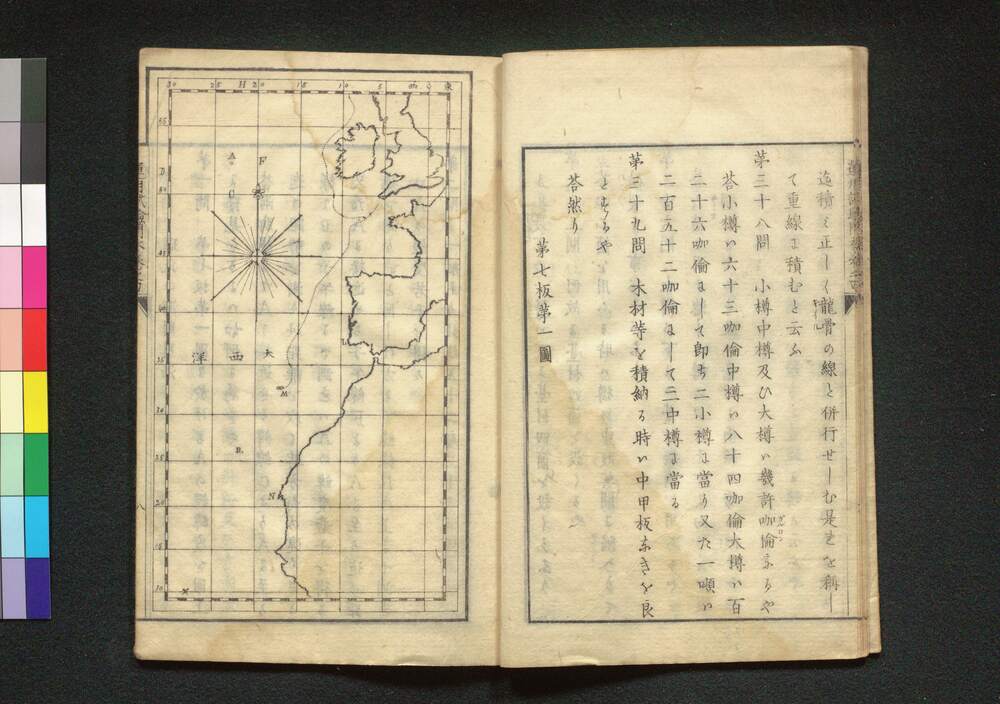 迄積ミ正しく龍骨の線と併行せしむ是を稱し
て重線に積むと云ふ
第三十八問 小樽中樽及ひ大樽ハ幾許咖倫なるや
答小樽ハ六十三咖倫中樽ハ八十四咖倫大樽ハ百
二十六咖倫にして即ち二小樽に當り又た一噸ハ
二百五十二咖倫にして三中樽に當る
第三十九問 木材等を積納る時ハ中甲板なきを良
とするや
答然り
第七板第一圖
30 25 H 20 15 10 5 0 東
D
A F
C
大西洋
M
B
N
45
40
35
30
25
20
15
10